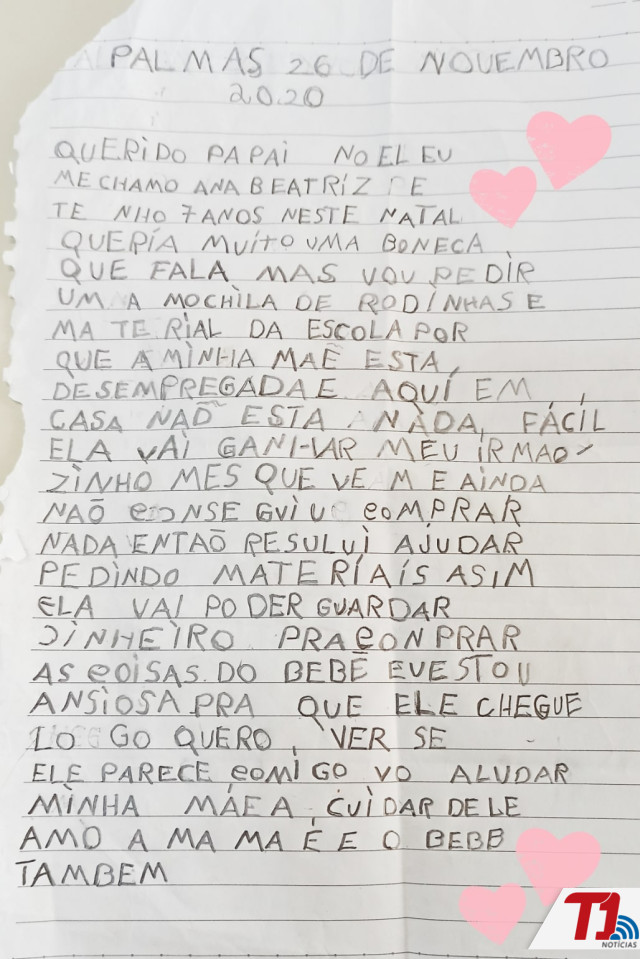 PALMAS 26 DE NOVEMBRO
2020
QUERIDO PAPAI NOEL EU
ME CHAMO ANA BEATRIZ E
TENHO 7 ANOS NESTE NATAL
QUERÍA MUITO UMA BONECA
QUE FALA MAS VOU PEDIR
UMA MOCHILA DE RODINHAS E
MATERIAL DA ESCOLA POR
QUE A MINHA MAẼ ESTA
DESEMPREGADA E AQUÍ EM
CASA NAÕ ESTA NADA FÁCIL
ELA VAI GANHAR MEU IRMAO
ZINHO MES QUE VEM E AINDA
NAÕ CONSEGUIU COMPRAR
NADA ENTAÕ RESULUI AJUDAR
PEDINDO MATERÍAÍS ASIM
ELA VAI PODER GUARDAR
DINHEIRO PRA CONPRAR
AS COISAS DO BEBÊ EU ESTOU
ANSIOSA PRA QUE ELE CHEGUE
LOGO QUERO VER SE
ELE PARECE COMIGO VO ALUDAR
MINHA MÁE A CUIDAR DELE
AMO A MAMAÉ E O BEBB
TAMBEM
T1
NOTÍCIAS